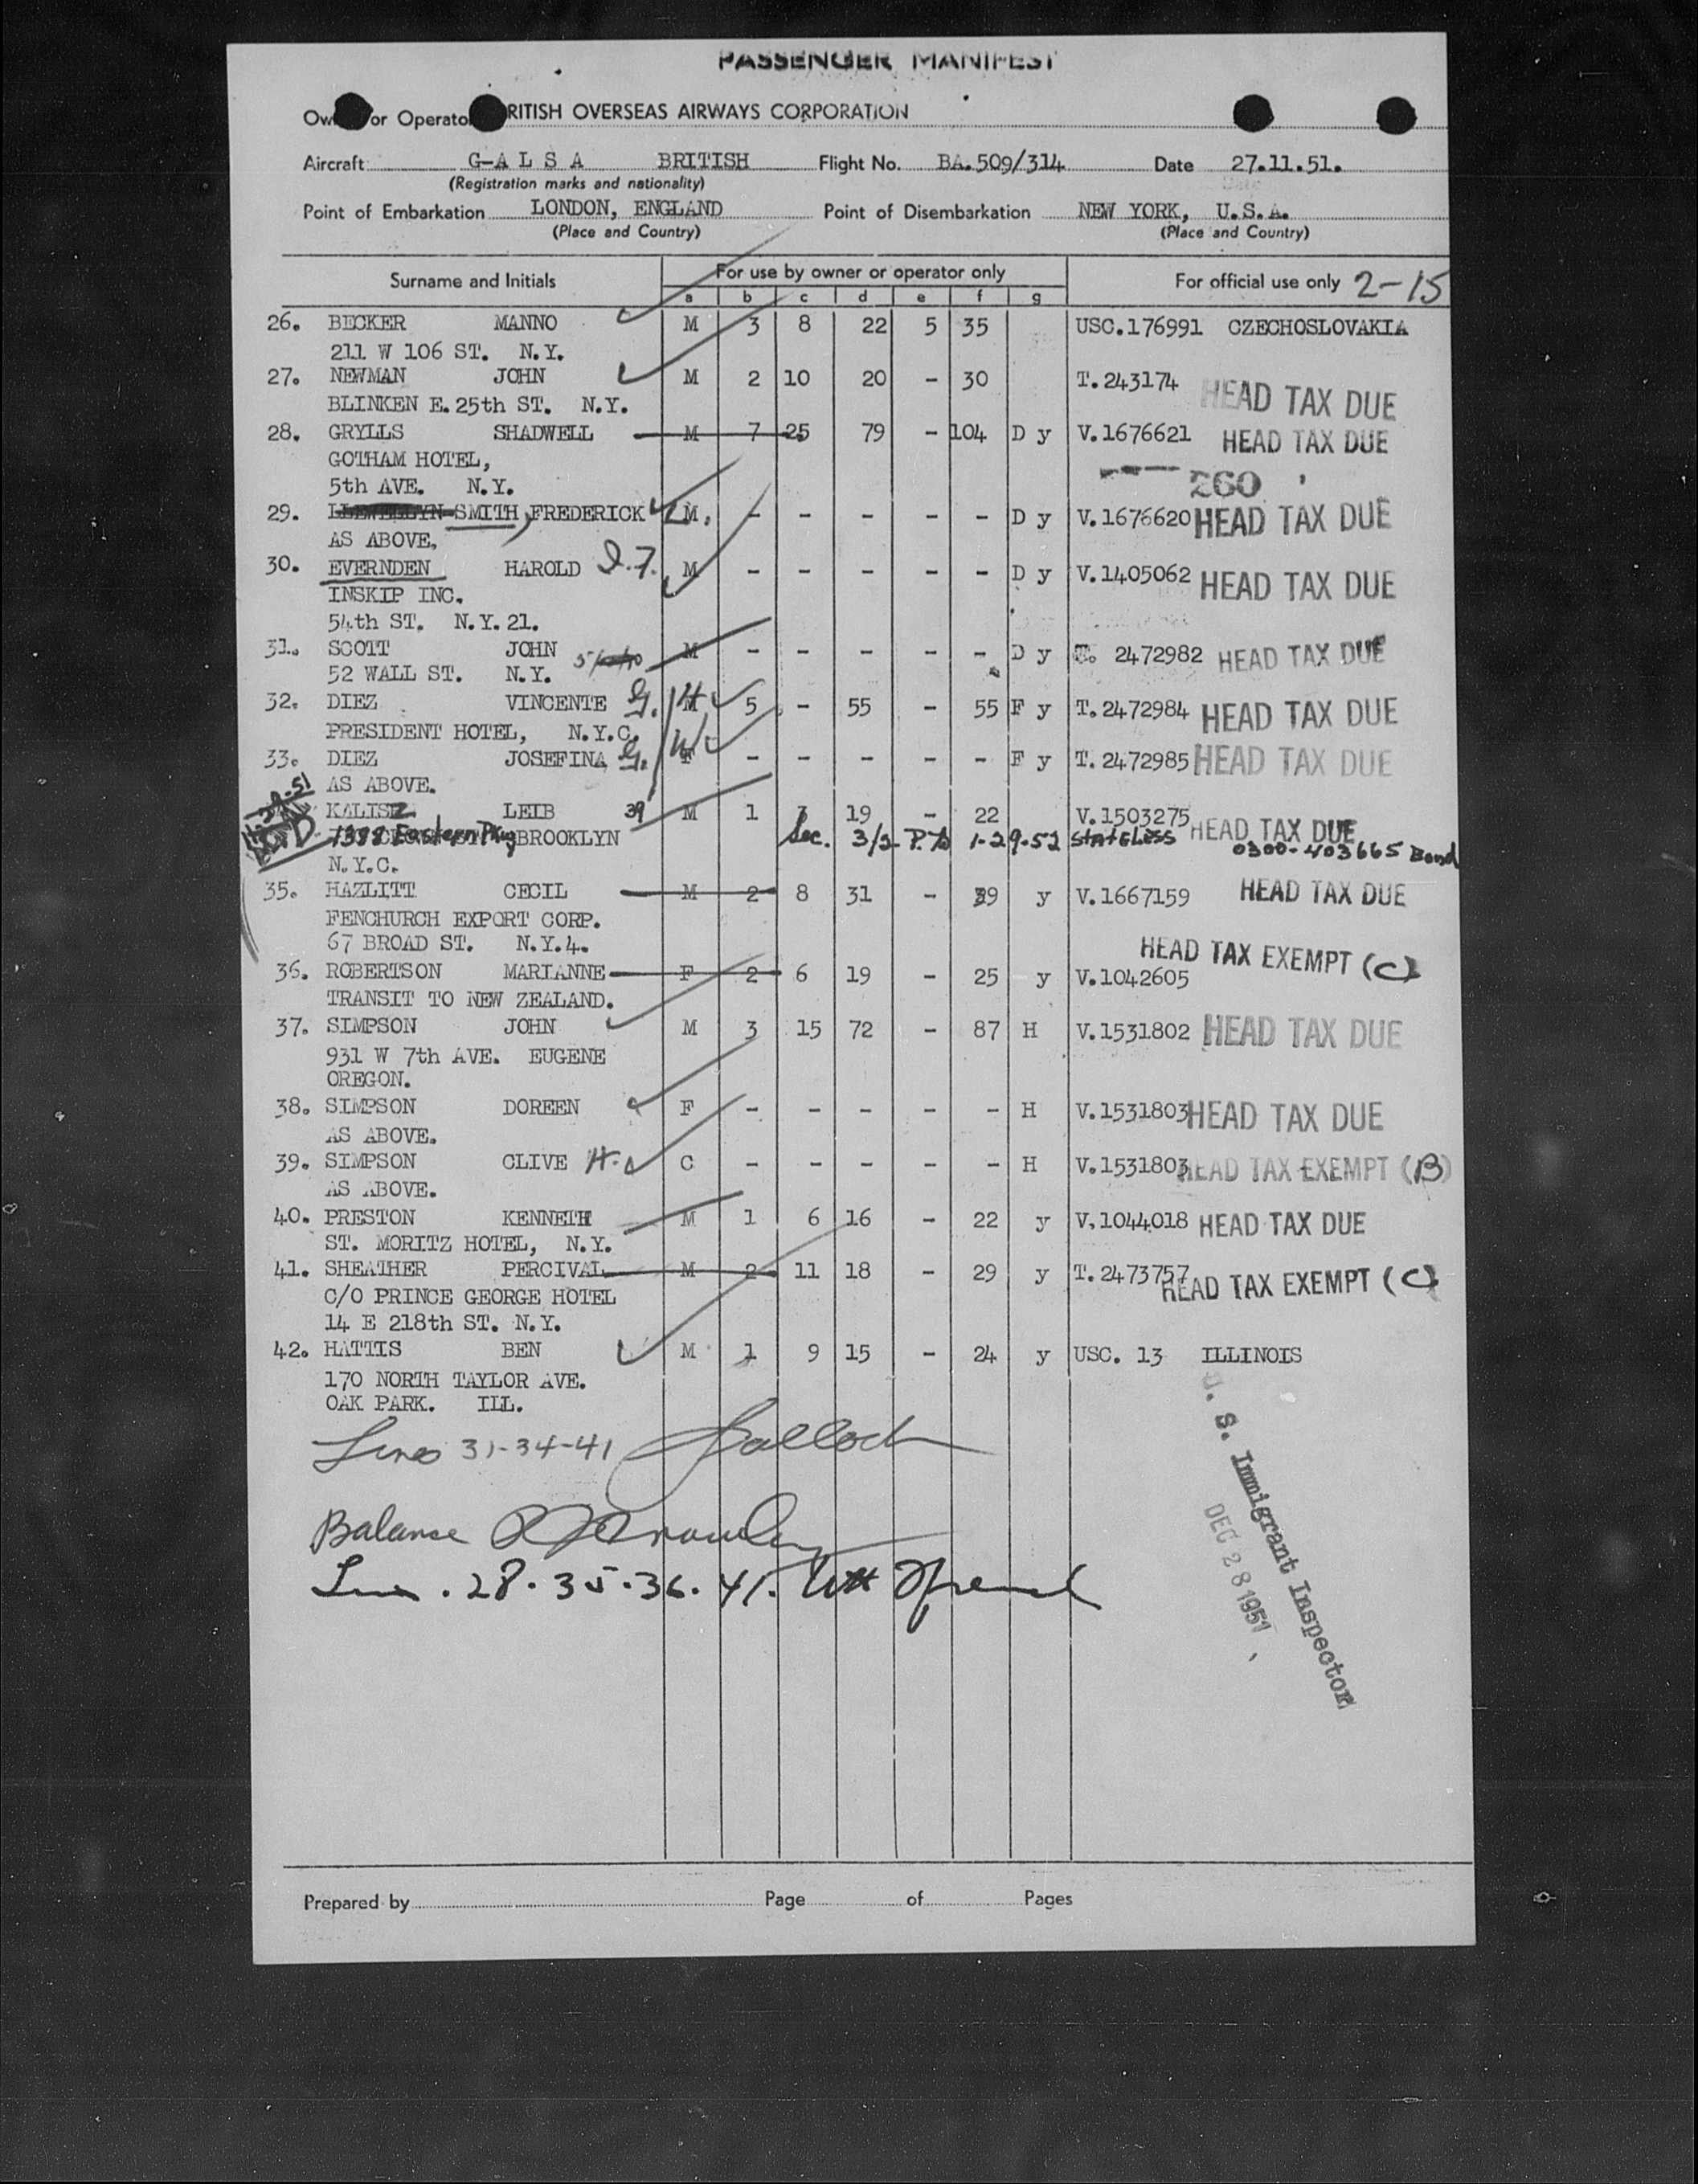 PASSENGER MANIFEST
Owner or Operator BRITISH OVERSEAS AIRWAYS CORPORATION
Aircraft G-A L S A BRITISH Flight No. BA.509/314 Date 27.11.51.
(Registration marks and nationality)
Point of Embarkation LONDON, ENGLAND Point of Disembarkation NEW YORK, U.S.A.
(Place and Country) (Place and Country)
Surname and Initials For use by owner or operator only For official use only 2-15
a b c d e f g
26. BECKER MANNO M 3 8 22 5 35 USC.176991 CZECHOSLOVAKIA
211 W 106 ST. N.Y.
27. NEWMAN JOHN M 2 10 20 - 30 T.243174 HEAD TAX DUE
BLINKEN E.25th ST. N.Y.
28. GRYLLS SHADWELL M 7 25 79 - 104 D y V.1676621 HEAD TAX DUE
GOTHAM HOTEL,
5th AVE. N.Y. 260
29. LLEWELLYN-SMITH, FREDERICK M. - - - - - D y V.1676620 HEAD TAX DUE
AS ABOVE,
30. EVERNDEN HAROLD I.F. M - - - - - D y V.1405062 HEAD TAX DUE
INSKIP INC.
54th ST. N.Y.21.
31. SCOTT JOHN M - - - - - D y T. 2472982 HEAD TAX DUE
52 WALL ST. N.Y.
32. DIEZ VINCENTE G. M 5 - 55 - 55 F y T.2472984 HEAD TAX DUE
PRESIDENT HOTEL, N.Y.C.
33. DIEZ JOSEFINA G. F - - - - - F y T.2472985 HEAD TAX DUE
AS ABOVE.
KALISZ LEIB 39 M 1 3 19 - 22 V.1503275 HEAD TAX DUE
1388 Eastern Pkwy BROOKLYN Sec. 3/2 P. 1-29-52 Stateless 0300-403665 Bond
N.Y.C.
35. HAZLITT CECIL M 2 8 31 - 39 y V.1667159 HEAD TAX DUE
FENCHURCH EXPORT CORP.
67 BROAD ST. N.Y.4.
HEAD TAX EXEMPT (C)
36. ROBERTSON MARIANNE F 2 6 19 - 25 y V.1042605
TRANSIT TO NEW ZEALAND.
37. SIMPSON JOHN M 3 15 72 - 87 H V.1531802 HEAD TAX DUE
931 W 7th AVE. EUGENE
OREGON.
38. SIMPSON DOREEN F - - - - - H V.1531803 HEAD TAX DUE
AS ABOVE.
39. SIMPSON CLIVE H. C - - - - - H V.1531803 HEAD TAX EXEMPT (B)
AS ABOVE.
40. PRESTON KENNETH M 1 6 16 - 22 y V.1044018 HEAD TAX DUE
ST. MORITZ HOTEL, N.Y.
41. SHEATHER PERCIVAL M 2 11 18 - 29 y T.2473757 HEAD TAX EXEMPT (C)
C/O PRINCE GEORGE HOTEL
14 E 218th ST. N.Y.
42. HATTIS BEN M 1 9 15 - 24 y USC. 13 ILLINOIS
170 NORTH TAYLOR AVE.
OAK PARK. ILL.
Lines 31-34-41
Balance
28. 35. 36. 41.
U. S. Immigrant Inspector
DEC 28 1951
Prepared by Page of Pages